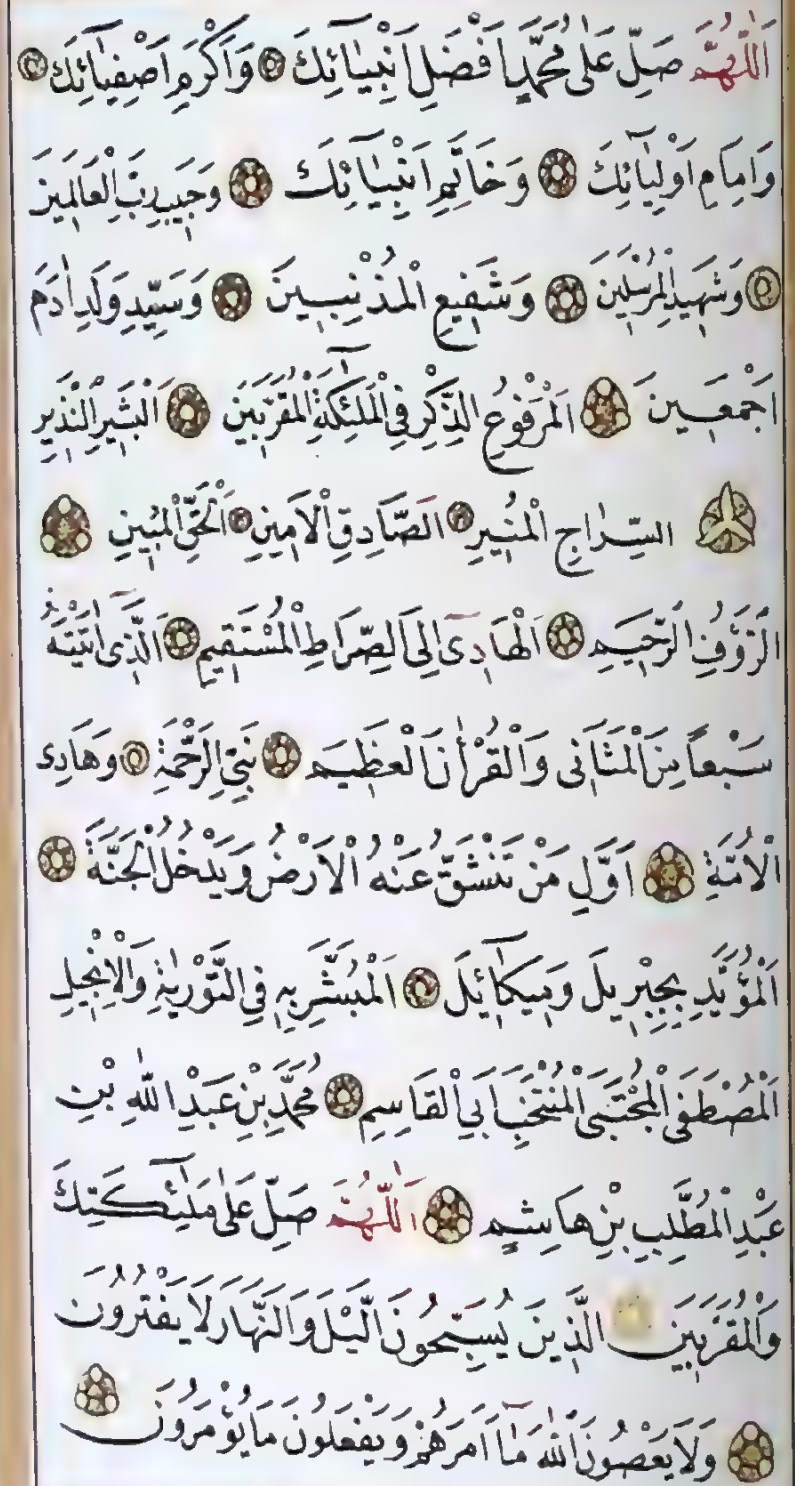 اَللّٰهُمَّ صَلِّ عَلٰى مُحَمَّدٍ اَفْضَلِ اَنْبِيَائِكَ وَاَكْرَمِ اَصْفِيَائِكَ
وَاِمَامِ اَوْلِيَائِكَ وَخَاتَمِ اَنْبِيَائِكَ وَحَبِيبِ رَبِّ الْعَالَمِينَ
وَشَهِيدِ الْمُرْسَلِينَ وَشَفِيعِ الْمُذْنِبِينَ وَسَيِّدِ وَلَدِ اٰدَمَ
اَجْمَعِينَ اَلْمَرْفُوعِ الذِّكْرِ فِى الْمَلٰئِكَةِ الْمُقَرَّبِينَ اَلْبَشِيرِ النَّذِيرِ
السِّرَاجِ الْمُنِيرِ اَلصَّادِقِ الْاَمِينِ اَلْحَقِّ الْمُبِينِ
اَلرَّؤُفِ الرَّحِيمِ اَلْهَادِى اِلَى الصِّرَاطِ الْمُسْتَقِيمِ اَلَّذِى اٰتَيْتَهُ
سَبْعاً مِنَ الْمَثَانِى وَالْقُرْاٰنَ الْعَظِيمَ نَبِىِّ الرَّحْمَةِ وَهَادِى
الْاُمَّةِ اَوَّلِ مَنْ تَنْشَقُّ عَنْهُ الْاَرْضُ وَيَدْخُلُ الْجَنَّةَ
اَلْمُؤَيَّدِ بِجِبْرِيلَ وَمِيكَائِيلَ اَلْمُبَشَّرِ بِهِ فِى التَّوْرٰيةِ وَالْاِنْجِيلِ
اَلْمُصْطَفَى الْمُجْتَبَى الْمُنْتَخَبِ اَبِى الْقَاسِمِ مُحَمَّدِ بْنِ عَبْدِ اللّٰهِ بْنِ
عَبْدِ الْمُطَّلِبِ بْنِ هَاشِمٍ اَللّٰهُمَّ صَلِّ عَلٰى مَلٰئِكَتِكَ
وَالْمُقَرَّبِينَ الَّذِينَ يُسَبِّحُونَ الَّيْلَ وَالنَّهَارَ لَا يَفْتُرُونَ
وَلَا يَعْصُونَ اللّٰهَ مَا اَمَرَهُمْ وَيَفْعَلُونَ مَا يُؤْمَرُونَ